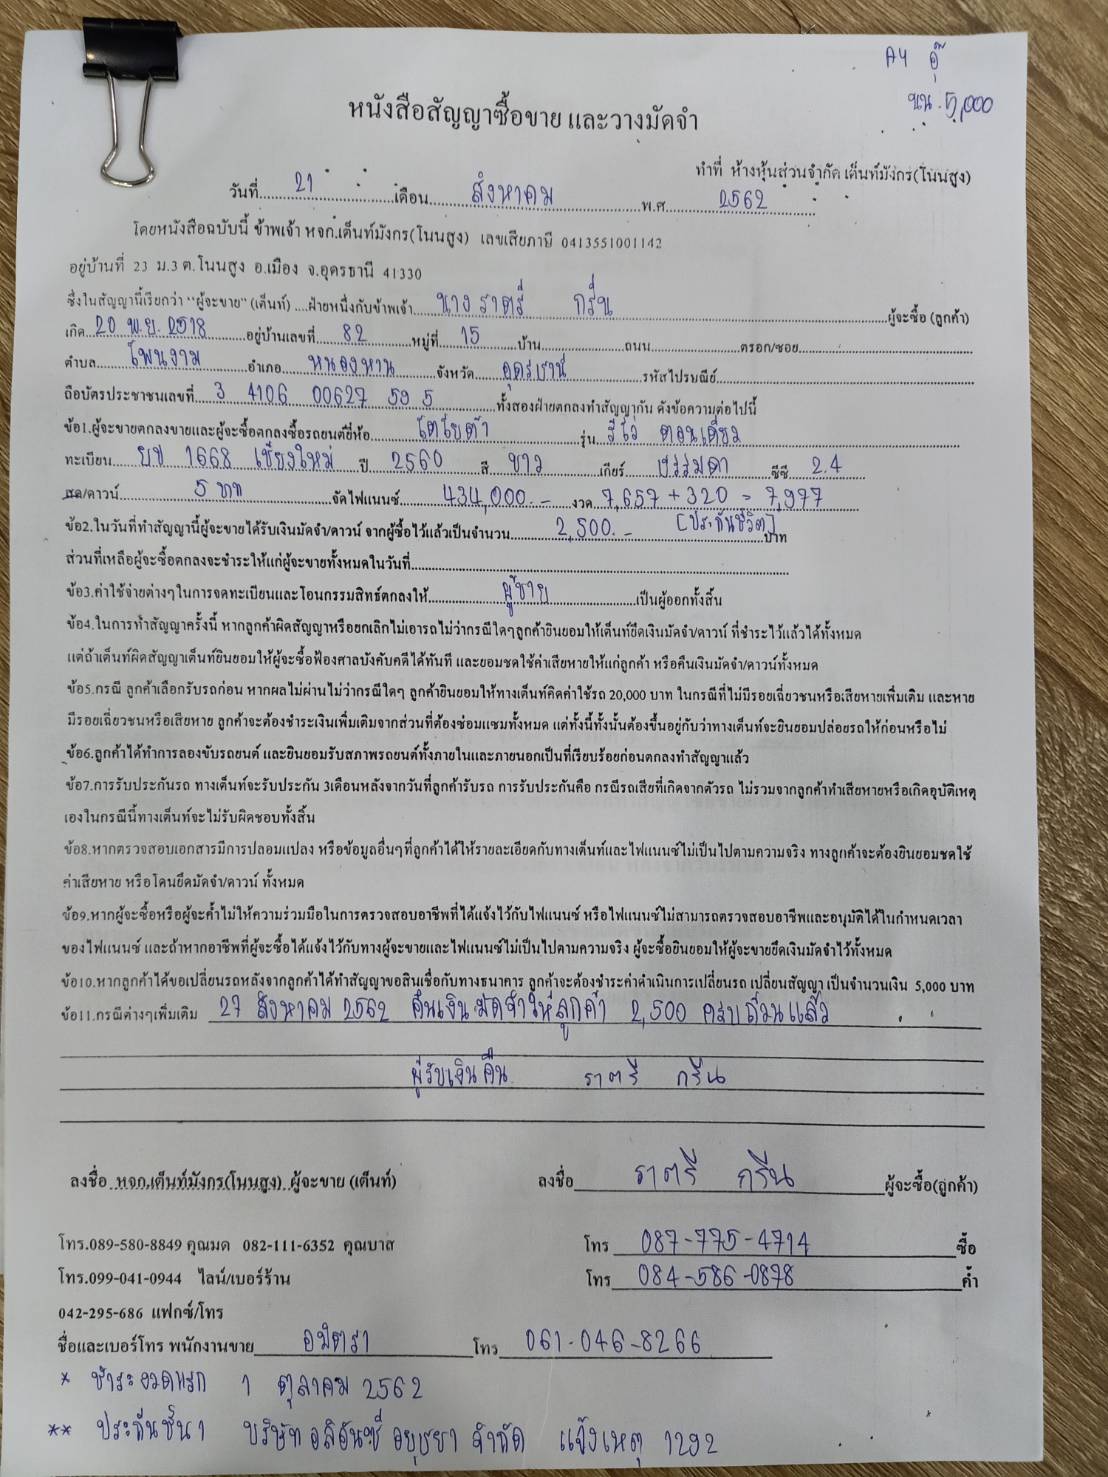 A4 อุ๊
นน. 5,000
หนังสือสัญญาซื้อขาย และวางมัดจำ
ทำที่ ห้างหุ้นส่วนจำกัด เต็นท์มังกร(โนนสูง)
วันที่ 21 เดือน สิงหาคม พ.ศ 2562
โดยหนังสือฉบับนี้ ข้าพเจ้า หจก.เต็นท์มังกร(โนนสูง) เลขเสียภาษี 0413551001142
อยู่บ้านที่ 23 ม.3 ต.โนนสูง อ.เมือง จ.อุดรธานี 41330
ซึ่งในสัญญานี้เรียกว่า "ผู้จะขาย" (เต็นท์) ....ฝ่ายหนึ่งกับข้าพเจ้า นางราตรี กรีน ผู้จะซื้อ (ลูกค้า)
เกิด 20 พ.ย. 2518 อยู่บ้านเลขที่ 82 หมู่ที่ 15 บ้าน ถนน ตรอก/ซอย
ตำบล โพนงาม อำเภอ หนองหาน จังหวัด อุดรธานี รหัสไปรษณีย์
ถือบัตรประชาชนเลขที่ 3 4106 00627 59 5 ทั้งสองฝ่ายตกลงทำสัญญากัน ดังข้อความต่อไปนี้
ข้อ1.ผู้จะขายตกลงขายและผู้จะซื้อตกลงซื้อรถยนต์ยี่ห้อ โตโยต้า รุ่น รีโว่ ตอนเดียว
ทะเบียน ยข 1668 เชียงใหม่ ปี 2560 สี ขาว เกียร์ ธรรมดา ซีซี 2.4
สด/ดาวน์ 5 บาท จัดไฟแนนซ์ 434,000.- งวด 7,657 + 320 = 7,977
(ประกันชีวิต)
ข้อ2.ในวันที่ทำสัญญานี้ผู้จะขายได้รับเงินมัดจำ/ดาวน์ จากผู้ซื้อไว้แล้วเป็นจำนวน 2,500.- บาท
ส่วนที่เหลือผู้จะซื้อตกลงจะชำระให้แก่ผู้จะขายทั้งหมดในวันที่
ข้อ3.ค่าใช้จ่ายต่างๆในการจดทะเบียนและโอนกรรมสิทธ์ตกลงให้ ผู้ขาย เป็นผู้ออกทั้งสิ้น
ข้อ4.ในการทำสัญญาครั้งนี้ หากลูกค้าผิดสัญญาหรือยกเลิกไม่เอารถไม่ว่ากรณีใดๆลูกค้ายินยอมให้เต็นท์ยึดเงินมัดจำ/ดาวน์ ที่ชำระไว้แล้วได้ทั้งหมด
แต่ถ้าเต็นท์ผิดสัญญาเต็นท์ยินยอมให้ผู้จะซื้อฟ้องศาลบังคับคดีได้ทันที และยอมชดใช้ค่าเสียหายให้แก่ลูกค้า หรือคืนเงินมัดจำ/ดาวน์ทั้งหมด
ข้อ5.กรณี ลูกค้าเลือกรับรถก่อน หากผลไม่ผ่านไม่ว่ากรณีใดๆ ลูกค้ายินยอมให้ทางเต็นท์คิดค่าใช้รถ 20,000 บาท ในกรณีที่ไม่มีรอยเฉี่ยวชนหรือเสียหายเพิ่มเติม และหาย
มีรอยเฉี่ยวชนหรือเสียหาย ลูกค้าจะต้องชำระเงินเพิ่มเติมจากส่วนที่ต้องซ่อมแซมทั้งหมด แต่ทั้งนี้ทั้งนั้นต้องขึ้นอยู่กับว่าทางเต็นท์จะยินยอมปล่อยรถให้ก่อนหรือไม่
ข้อ6.ลูกค้าได้ทำการลองขับรถยนต์ และยินยอมรับสภาพรถยนต์ทั้งภายในและภายนอกเป็นที่เรียบร้อยก่อนตกลงทำสัญญาแล้ว
ข้อ7.การรับประกันรถ ทางเต็นท์จะรับประกัน 3เดือนหลังจากวันที่ลูกค้ารับรถ การรับประกันคือ กรณีรถเสียที่เกิดจากตัวรถ ไม่รวมจากลูกค้าทำเสียหายหรือเกิดอุบัติเหตุ
เองในกรณีนี้ทางเต็นท์จะไม่รับผิดชอบทั้งสิ้น
ข้อ8.หากตรวจสอบเอกสารมีการปลอมแปลง หรือข้อมูลอื่นๆที่ลูกค้าได้ให้รายละเอียดกับทางเต็นท์และไฟแนนซ์ไม่เป็นไปตามความจริง ทางลูกค้าจะต้องยินยอมชดใช้
ค่าเสียหาย หรือโดนยึดมัดจำ/ดาวน์ ทั้งหมด
ข้อ9.หากผู้จะซื้อหรือผู้จะค้ำไม่ให้ความร่วมมือในการตรวจสอบอาชีพที่ได้แจ้งไว้กับไฟแนนซ์ หรือไฟแนนซ์ไม่สามารถตรวจสอบอาชีพและอนุมัติได้ในกำหนดเวลา
ของไฟแนนซ์ และถ้าหากอาชีพที่ผู้จะซื้อได้แจ้งไว้กับทางผู้จะขายและไฟแนนซ์ไม่เป็นไปตามความจริง ผู้จะซื้อยินยอมให้ผู้จะขายยึดเงินมัดจำไว้ทั้งหมด
ข้อ10.หากลูกค้าได้ขอเปลี่ยนรถหลังจากลูกค้าได้ทำสัญญาขอสินเชื่อกับทางธนาคาร ลูกค้าจะต้องชำระค่าดำเนินการเปลี่ยนรถ เปลี่ยนสัญญา เป็นจำนวนเงิน 5,000 บาท
ข้อ11.กรณีต่างๆเพิ่มเติม 27 สิงหาคม 2562 คืนเงินมัดจำให้ลูกค้า 2,500 ครบถ้วนแล้ว
ผู้รับเงินคืน ราตรี กรีน
ลงชื่อ หจก.เต็นท์มังกร(โนนสูง) ผู้จะขาย (เต็นท์) ลงชื่อ ราตรี กรีน ผู้จะซื้อ(ลูกค้า)
โทร.089-580-8849 คุณมด 082-111-6352 คุณบาส โทร 087-775-4714 ซื้อ
โทร.099-041-0944 ไลน์/เบอร์ร้าน โทร 084-586-0878 ค้ำ
042-295-686 แฟกซ์/โทร
ชื่อและเบอร์โทร พนักงานขาย อมิตรา โทร 061-046-8266
* ชำระงวดแรก 1 ตุลาคม 2562
** ประกันชั้น 1 บริษัท อลิอันซ์ อยุธยา จำกัด แจ้งเหตุ 1292